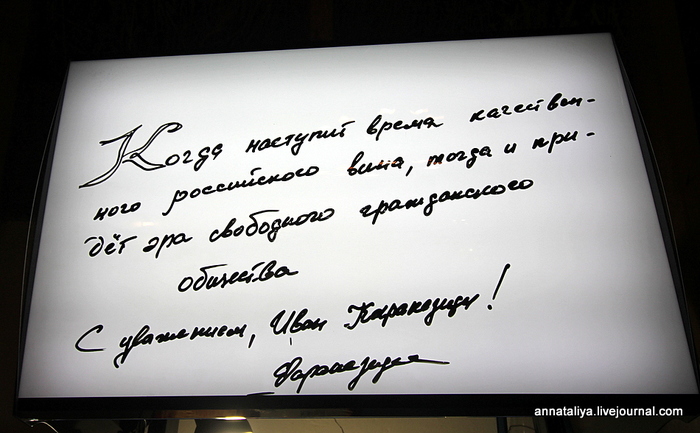 Когда наступит время качествен-
ного российского вина, тогда и при-
дёт эра свободного гражданского
общества
С уважением, Иван Каракезиди!
Каракезиди
annataliya.livejournal.com